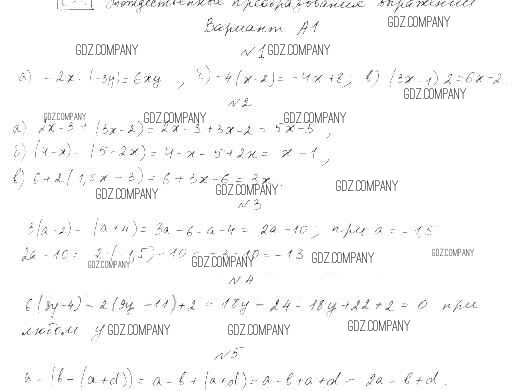 Тождественные преобразования выражений
GDZ.COMPANY
Вариант А1
GDZ.COMPANY №1 GDZ.COMPANY
а) -2x·(-3y)=6xy, б) -4(x-2)=-4x+8, в) (3x-1)·2=6x-2.
GDZ.COMPANY
№2
GDZ.COMPANY GDZ.COMPANY GDZ.COMPANY
а) 2x-3+(3x-2)=2x-3+3x-2=5x-5,
б) (4-x)-(5-2x)=4-x-5+2x=x-1,
в) 6+2(1,5x-3)=6+3x-6=3x.
GDZ.COMPANY GDZ.COMPANY GDZ.COMPANY
№3
3(a-2)-(a+4)=3a-6-a-4=2a-10, при a=-1,5
2a-10=2·(-1,5)-10=-3-10=-13
GDZ.COMPANY GDZ.COMPANY GDZ.COMPANY GDZ.COMPANY
№4
6(3y-4)-2(9y-11)+2=18y-24-18y+22+2=0 при
любом y GDZ.COMPANY GDZ.COMPANY GDZ.COMPANY
№5
a-(b-(a+d))=a-b+(a+d)=a-b+a+d=2a-b+d.